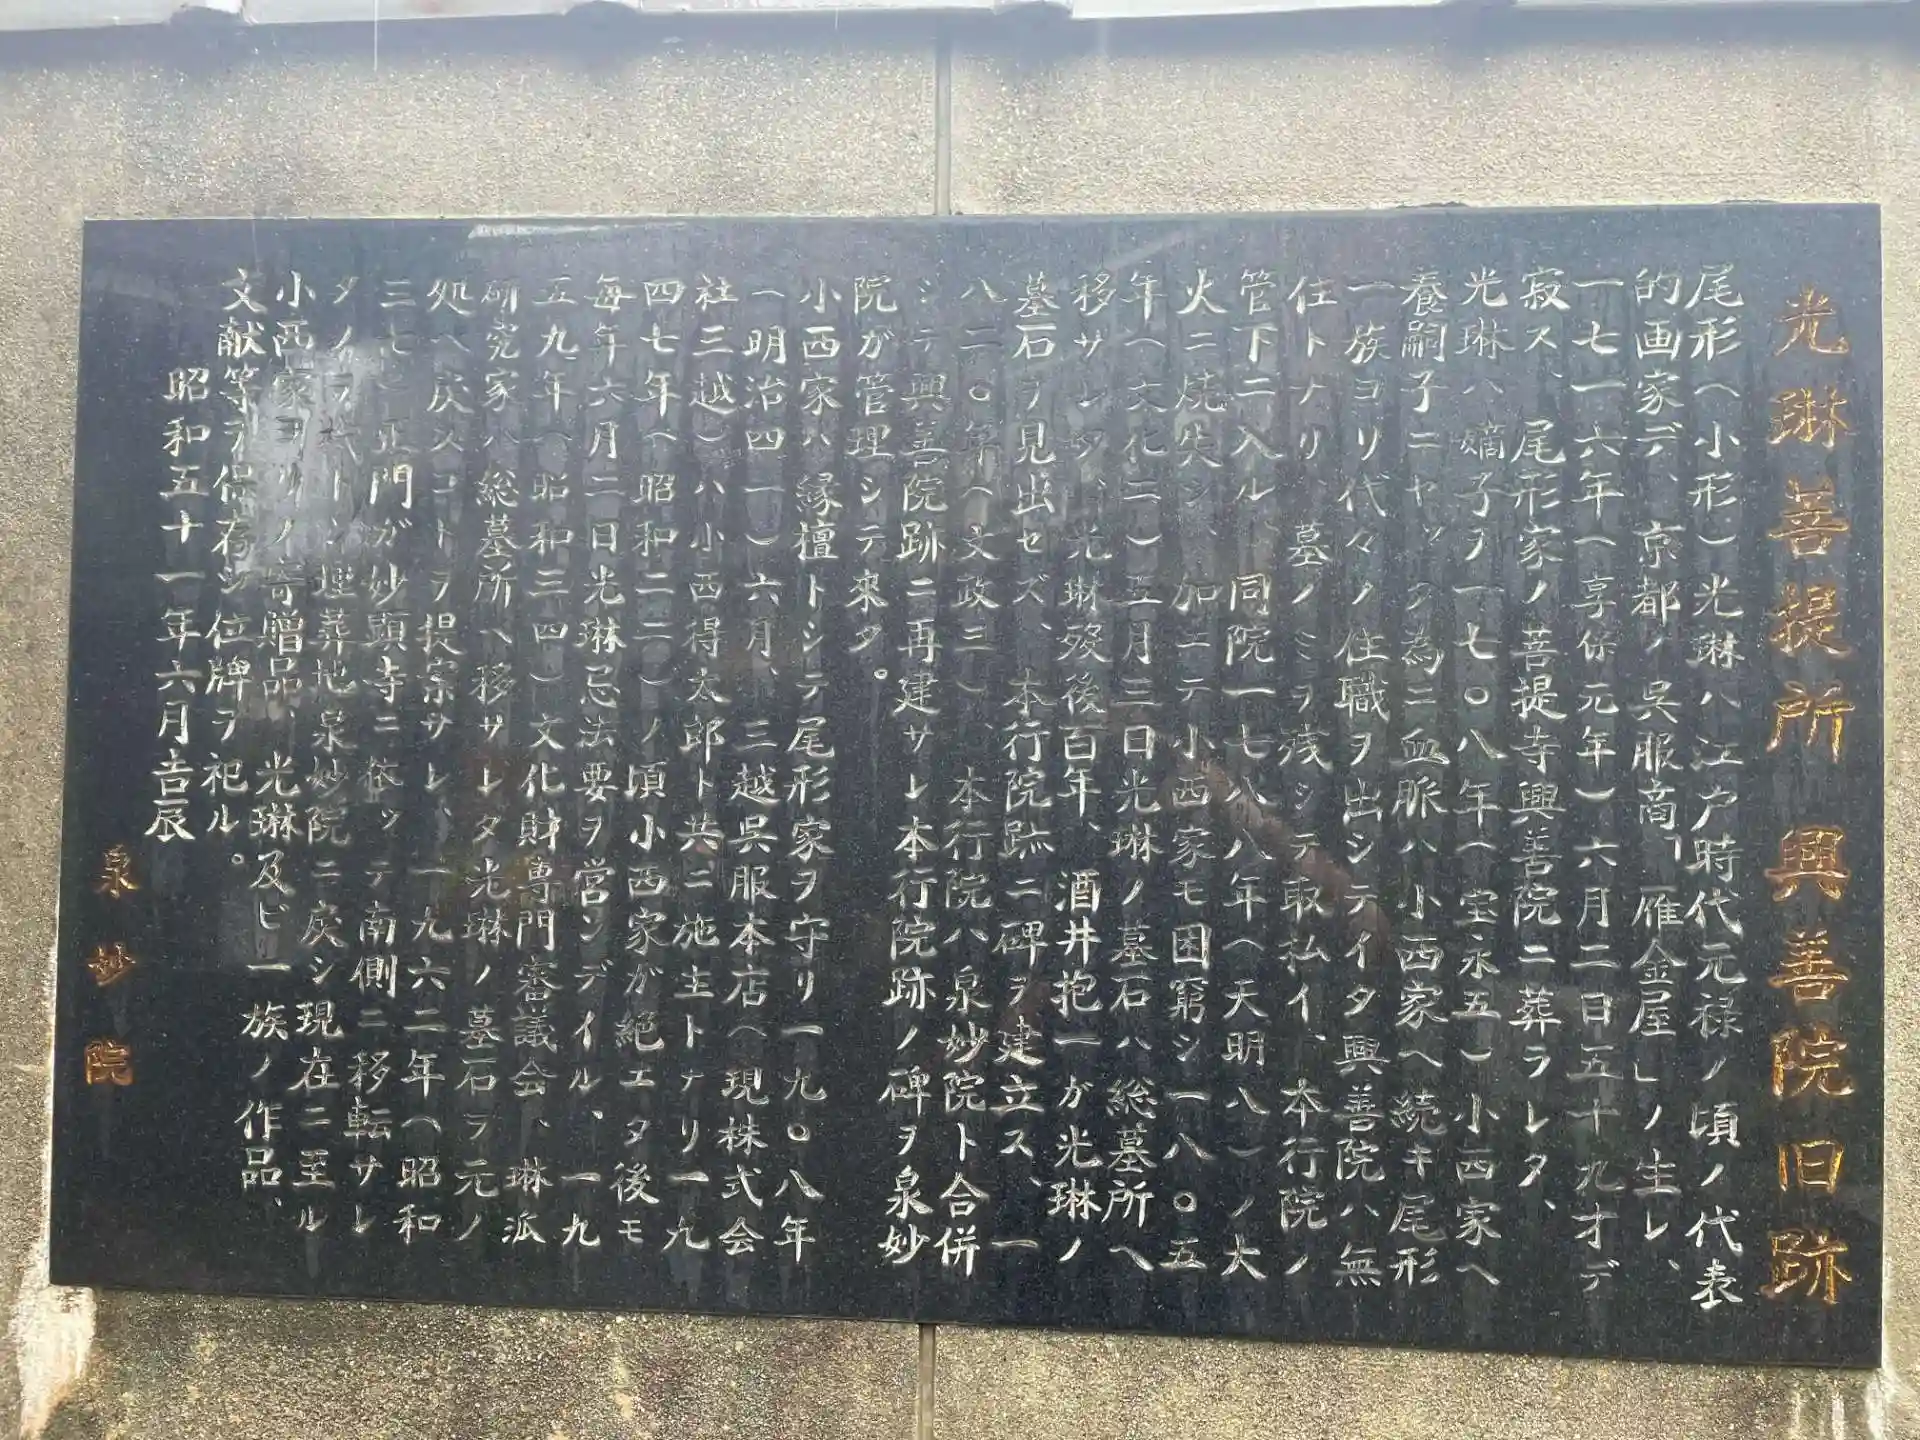 光琳菩提所 興善院旧跡
尾形(小形)光琳ハ江戸時代元禄ノ頃ノ代表
的画家デ、京都ノ呉服商「雁金屋」ノ生レ、
一七一六年(享保元年)六月二日五十九才デ
寂ス、尾形家ノ菩提寺興善院ニ葬ラレタ、
光琳ハ嫡子ヲ一七〇八年(宝永五)小西家ヘ
養嗣子ニヤッタ為ニ血脈ハ小西家ヘ続キ尾形
一族ヨリ代々ノ住職ヲ出シテイタ興善院ハ無
住トナリ、墓ノミヲ残シテ取払イ、本行院ノ
管下ニ入ル、同院一七八八年(天明八)ノ大
火ニ焼失シ、加エテ小西家モ困窮シ一八〇五
年(文化二)五月三日光琳ノ墓石ハ総墓所ヘ
移サレタ、光琳歿後百年、酒井抱一ガ光琳ノ
墓石ヲ見出セズ、本行院跡ニ碑ヲ建立ス、一
八二〇年(文政三)、本行院ハ泉妙院ト合併
シテ興善院跡ニ再建サレ本行院跡ノ碑ヲ泉妙
院ガ管理シテ来タ。
小西家ハ縁檀トシテ尾形家ヲ守リ一九〇八年
(明治四一)六月、三越呉服本店(現株式会
社三越)ハ小西得太郎ト共ニ施主トナリ一九
四七年(昭和二二)ノ頃小西家ガ絶エタ後モ
毎年六月二日光琳忌法要ヲ営ンデイル、一九
五九年(昭和三四)文化財専門審議会、琳派
研究家ハ総墓所ヘ移サレタ光琳ノ墓石ヲ元ノ
処ヘ戻スコトヲ提案サレ、一九六二年(昭和
三七)正門ガ妙顕寺ニ依ッテ南側ニ移転サレ
タノヲ機トシ埋葬地泉妙院ニ戻シ現在ニ至ル
小西家ヨリノ寄贈品、光琳及ビ一族ノ作品、
文献等ヲ保存シ位牌ヲ祀ル。
昭和五十一年六月吉辰
泉妙院